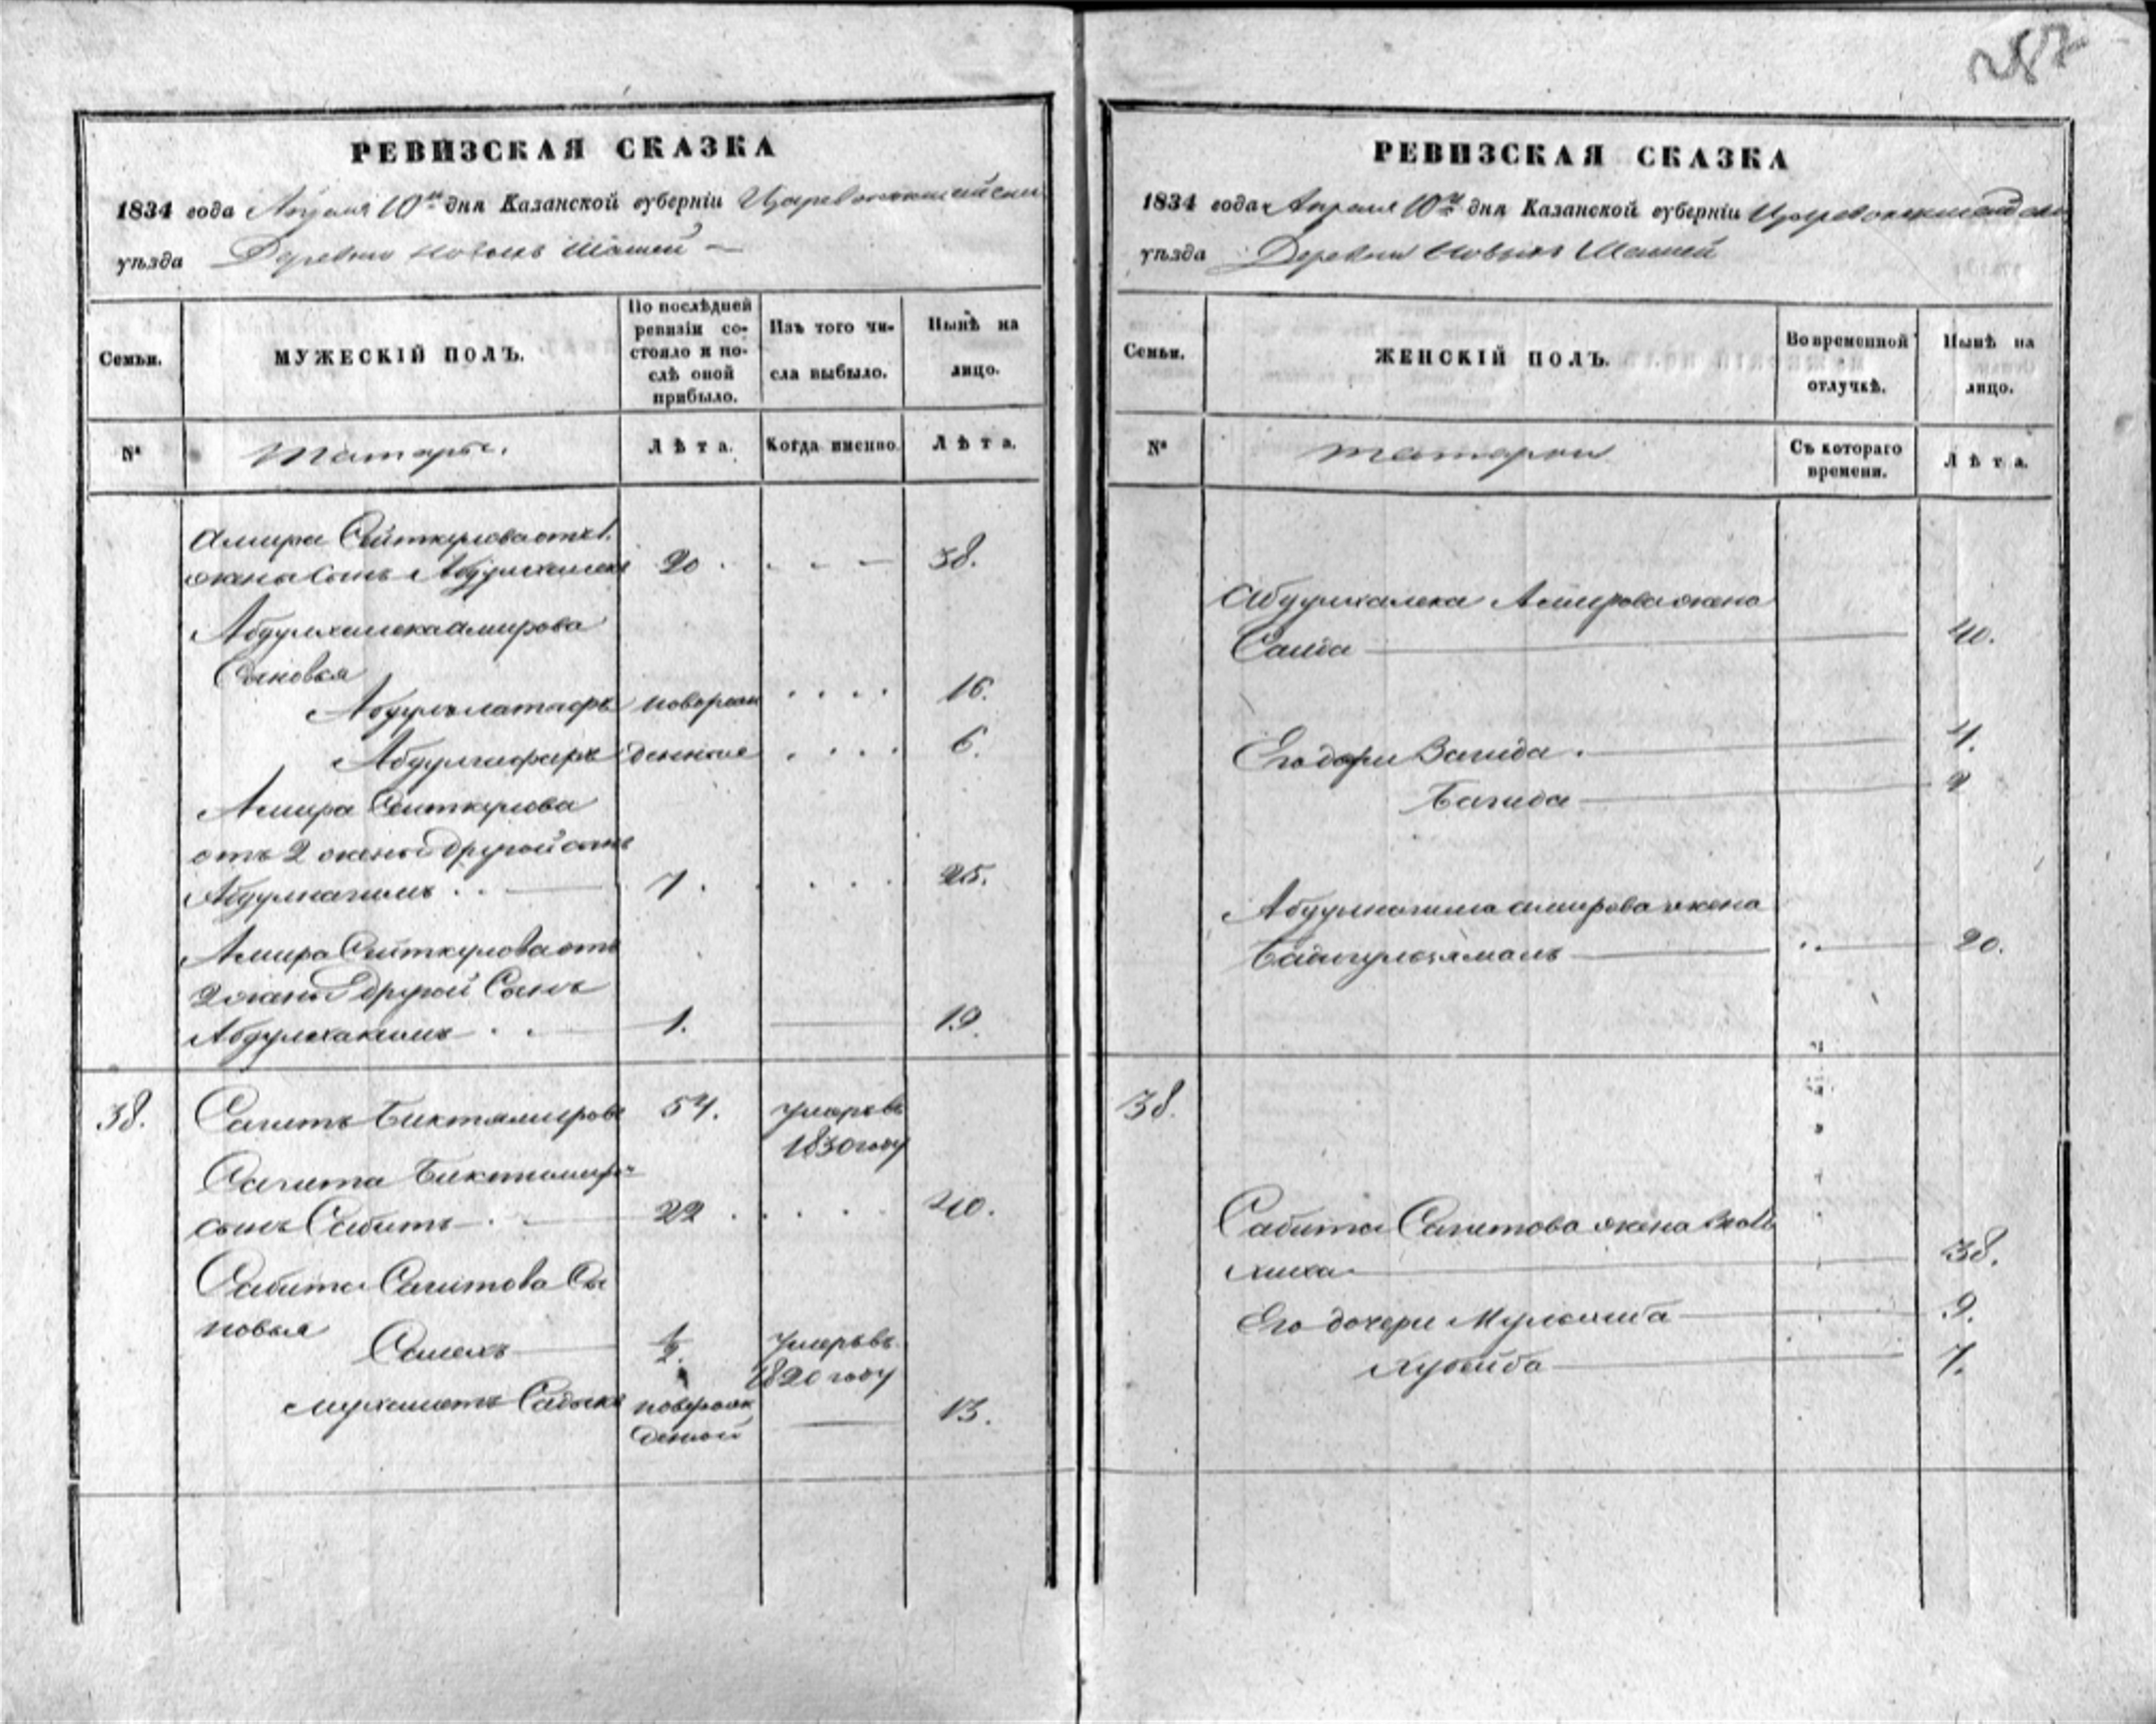 287
РЕВИЗСКАЯ СКАЗКА
1834 года Апреля 10го дня Казанской губерніи Царевококшайской
уѣзда Деревни Новыхъ Шашей
Семьи.
МУЖЕСКІЙ ПОЛЪ.
По послѣдней
ревизіи со-
стояло и по-
слѣ оной
прибыло.
Изъ того чи-
сла выбыло.
Нынѣ на
лицо.
№
Татары.
Лѣта.
Когда именно.
Лѣта.
Амира Сейткулова отъ 1.
жены сынъ Абдулхалекъ 20 38.
Абдулхалека Амирова
Сыновья
Абдуллатафъ новорож 16.
Абдулгафаръ денные 6.
Амира Сеиткулова
отъ 2 жены другой сынъ
Абдулнагимъ 7. 25.
Амира Сейткулова отъ
2 жены другой Сынъ
Абдулхакимъ 1. 19.
38. Сагитъ Биктамировъ 54. умеръ въ
1830 году
Сагита Биктамиро
сынъ Сабитъ 22 40.
Сабита Сагитова Сы
новья
Салехъ 1/2. умеръ въ
1820 году
Мухаметъ Садыкъ новорож 13.
денной
РЕВИЗСКАЯ СКАЗКА
1834 года Апреля 10го дня Казанской губерніи Царевококшайской
уѣзда Деревни Новыхъ Шашей
Семьи.
ЖЕНСКІЙ ПОЛЪ.
Во временной
отлучкѣ.
Нынѣ на
лицо.
№
татарки
Съ котораго
времени.
Лѣта.
Абдулхалека Амирова жена
Саида 40.
Его дочери Вагида 4.
Багида 2
Абдулнагима Амирова жена
20.
38.
Сабита Сагитова жена
38.
Его дочери 9.
Хубейба 7.